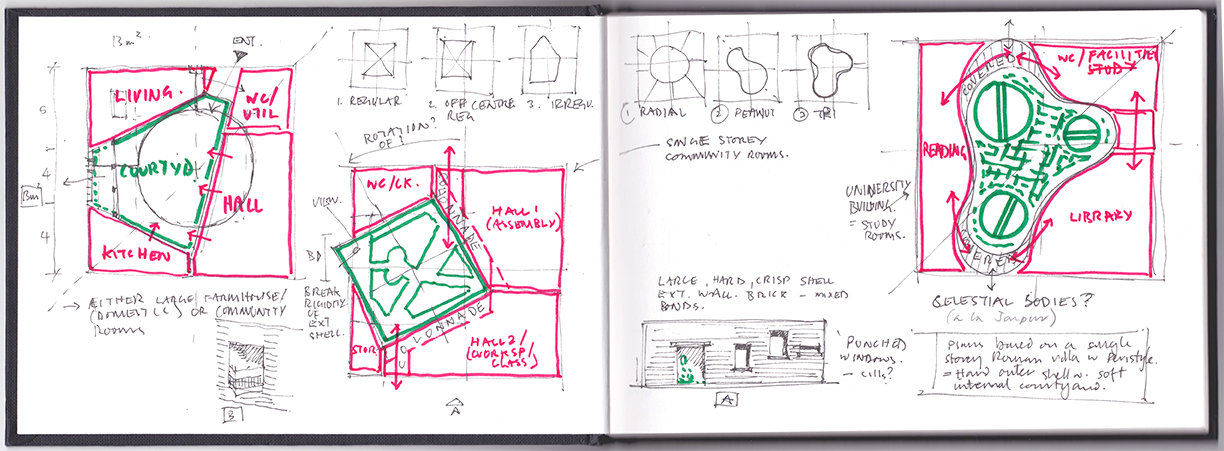 13m²
ENT.
LIVING.
WC/
UTIL
COURTYD.
HALL
KITCHEN
5
4
4
13m
→ EITHER LARGE FARMHOUSE/
(DOMESTIC) OR COMMUNITY
ROOMS
B
1. REGULAR
2. OFF CENTRE
REG
3. IRREGU.
ROTATION?
OF?
WC/CK.
COLONNADE
HALL 1
(ASSEMBLY)
VIEW.
B
BREAK
RIGIDITY
OF
EXT
SHELL.
STOR
COLONNADE
HALL 2/
(WORKSP/
CLASS)
A
1 RADIAL
2 PEANUT
3 TRI
SINGLE STOREY
COMMUNITY ROOMS.
UNIVERSITY
BUILDING.
= STUDY
ROOMS.
COVERED
WC/FACILITIES
STUDY
READING
LIBRARY
COVERED
LARGE, HARD, CRISP SHELL
EXT. WALL. BRICK – MIXED
BONDS.
'PUNCHED'
WINDOWS.
– CILLS?
A
CELESTIAL BODIES?
(a la Jaipur)
Plans based on a single
storey Roman villa w Peristyle.
= Hard outer shell w. soft
internal courtyard.